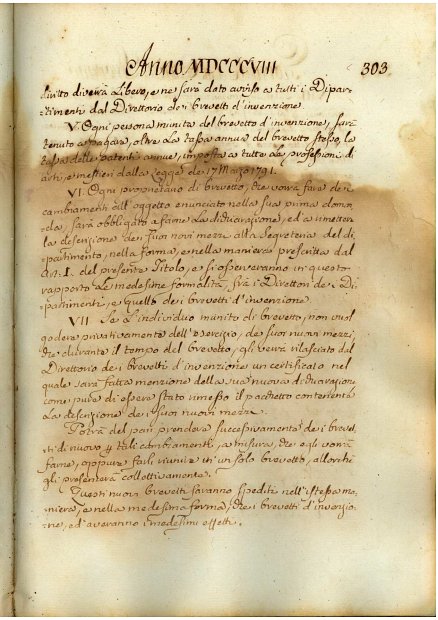 Anno MDCCCVIII 303
diritto diverrà Libero, e ne sarà dato avviso a tutti i Dipar-
timenti dal Direttorio de i brevetti d'invenzione.
V. Ogni persona munita del brevetto d'invenzione, sarà
tenuto a pagare, oltre la tassa annua del brevetto stesso, la
tassa delle patenti annue, imposta a tutte le professioni di
arti, e mestieri dalla legge de 17 Marzo 1791.
VI. Ogni proprietario di brevetto, che vorrà fare de i
cambiamenti all'oggetto enunciato nella sua prima doman-
da, sarà obbligato a farne la dichiarazione, ed a rimettere
la descrizione de i suoi novi mezzi alla Segreteria del di-
partimento, nella forma, e nella maniera prescritta dall
Art. I. del presente Titolo, e si osserveranno in questo
rapporto le medesime formalità, frà i Direttori de i Di-
partimenti, e quello de i brevetti d'invenzione.
VII Se l'individuo munito di brevetto, non vuol
godere privativamente dell'esercizio, de suoi nuovi mezzi,
che durante il tempo del brevetto, gli verrà rilasciato dal
Direttorio de i brevetti d'invenzione un certificato nel
quale sarà fatta menzione della sua nuova dichiarazione
come pure di essere stato rimesso il pacchetto contenente
la descrizione de i suoi nuovi mezzi.
Potrà del pari prendere successivamente de i brevet-
ti di nuovo p tali cambiamenti, a misura, che egli vorrà
farne, oppure farli riunire in un solo brevetto, allorchè
gli presenterà collettivamente.
Questi nuovi brevetti saranno spediti nell'istessa ma-
niera, e nella medesima forma, che i brevetti d'invenzio-
ne, ed averanno i medesimi effetti.